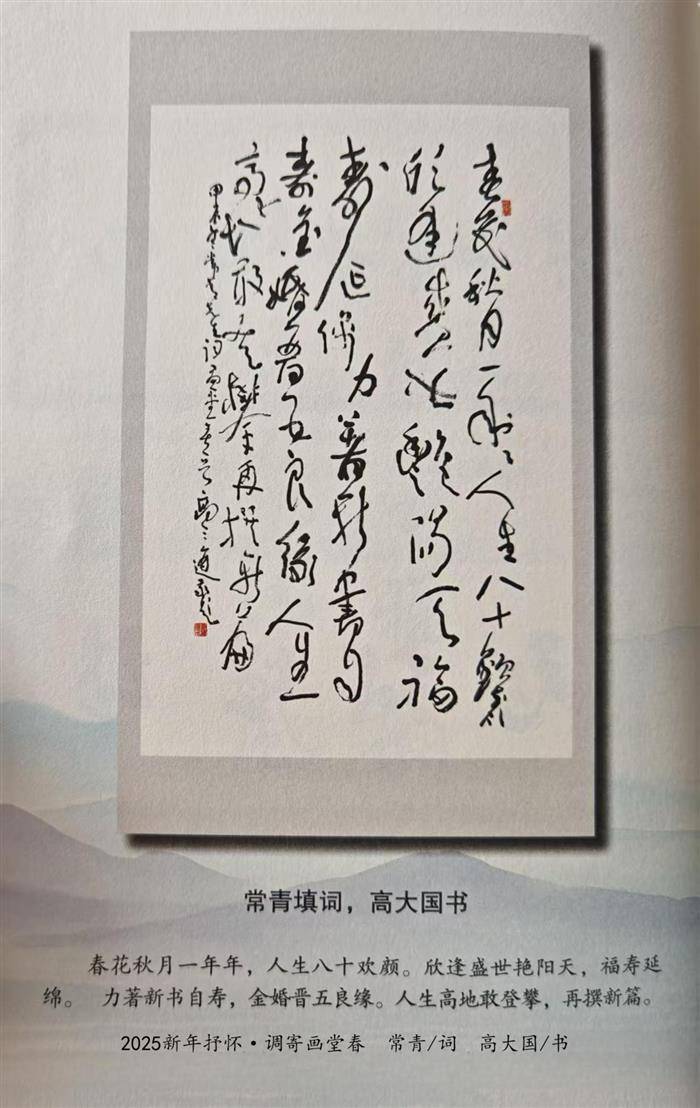 春花秋月一年年人生八十歡顏
欣逢盛世艷陽天福
壽延綿力著新書自
壽金婚晋五良緣人生
高地敢登攀再撰新篇
常青先生词画堂春
常青填词，高大国书
春花秋月一年年，人生八十欢颜。欣逢盛世艳阳天，福寿延
绵。 力著新书自寿，金婚晋五良缘。人生高地敢登攀，再撰新篇。
2025新年抒怀·调寄画堂春 常青/词 高大国/书